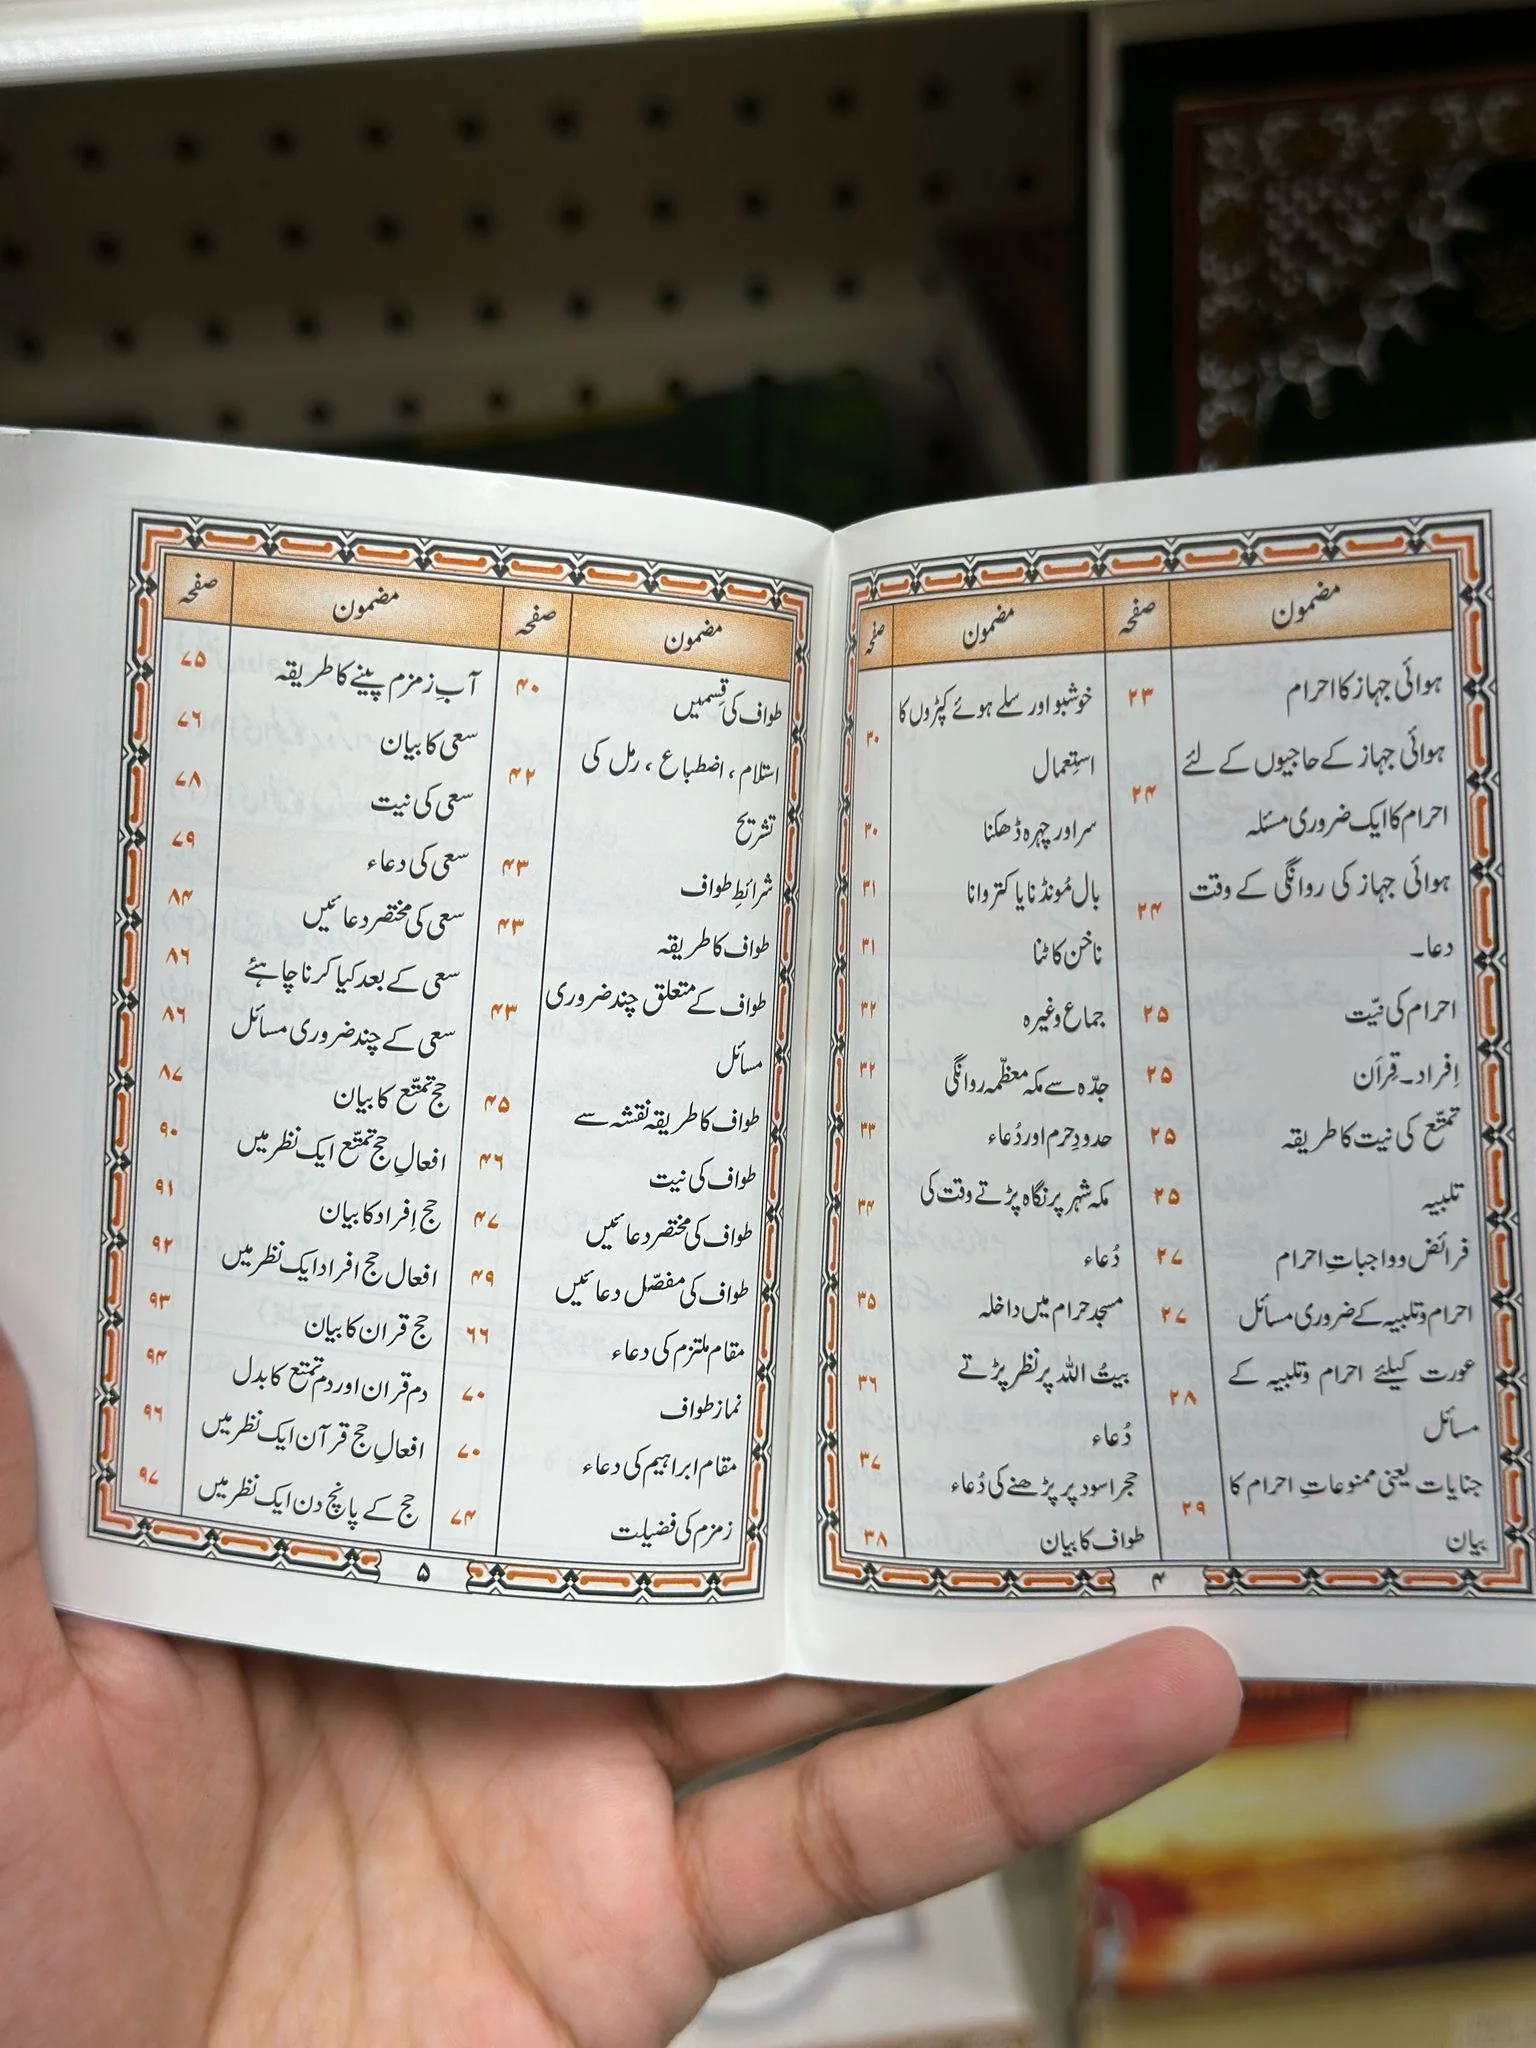 مضمون
صفحہ
ہوائی جہاز کا احرام ۲۳
ہوائی جہاز کے حاجیوں کے لئے
احرام کا ایک ضروری مسئلہ ۲۴
ہوائی جہاز کی روانگی کے وقت
دعا۔ ۲۴
احرام کی نیّت ۲۵
اِفراد۔ قِرَان ۲۵
تمتّع کی نیت کا طریقہ ۲۵
تلبیہ ۲۵
فرائض و واجباتِ احرام ۲۷
احرام و تلبیہ کے ضروری مسائل ۲۷
عورت کیلئے احرام و تلبیہ کے
مسائل ۲۸
جنایات یعنی ممنوعاتِ احرام کا
بیان ۲۹
مضمون
صفحہ
خوشبو اور سلے ہوئے کپڑوں کا
استِعمال ۳۰
سر اور چہرہ ڈھکنا ۳۰
بال مُونڈنا یا کتروانا ۳۱
ناخن کاٹنا ۳۱
جماع وغیرہ ۳۲
جدّہ سے مکہ معظّمہ روانگی ۳۲
حدودِ حرم اور دُعاء ۳۳
مکہ شہر پر نگاہ پڑتے وقت کی ۳۴
دُعاء
مسجد حرام میں داخلہ ۳۵
بیتُ اللہ پر نظر پڑتے ۳۶
دُعاء
حجر اسود پر پڑھنے کی دُعاء ۳۷
طواف کا بیان ۳۸
۴
مضمون
صفحہ
طواف کی قِسمیں ۴۰
استلام ، اضطباع ، رمل کی
تشریح ۴۲
شرائطِ طواف ۴۳
طواف کا طریقہ ۴۳
طواف کے متعلق چند ضروری
مسائل ۴۳
طواف کا طریقہ نقشہ سے ۴۵
طواف کی نیت ۴۶
طواف کی مختصر دعائیں ۴۷
طواف کی مفصّل دعائیں ۴۹
مقام ملتزم کی دعاء ۶۶
نماز طواف ۷۰
مقام ابراہیم کی دعاء ۷۰
زمزم کی فضیلت ۷۴
مضمون
صفحہ
آبِ زمزم پینے کا طریقہ ۷۵
سعی کا بیان ۷۶
سعی کی نیت ۷۸
سعی کی دعاء ۷۹
سعی کی مختصر دعائیں ۸۴
سعی کے بعد کیا کرنا چاہئے ۸۶
سعی کے چند ضروری مسائل ۸۶
حج تمتّع کا بیان ۸۷
افعالِ حج تمتّع ایک نظر میں ۹۰
حج اِفراد کا بیان ۹۱
افعال حج افراد ایک نظر میں ۹۲
حج قران کا بیان ۹۳
دم قران اور دم تمتع کا بدل ۹۴
افعالِ حج قرآن ایک نظر میں ۹۶
حج کے پانچ دن ایک نظر میں ۹۷
۵